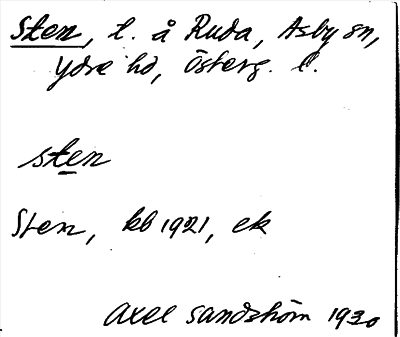 Sten, t. å Ruda, Asby sn,
Ydre hd, Österg. l.
sten
Sten, kb 1921, ek
Axel Sandström 1930